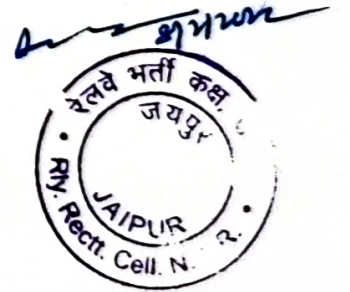 रेलवे भर्ती कक्ष,
जयपुर
JAIPUR
Rly. Rectt. Cell. N. R.